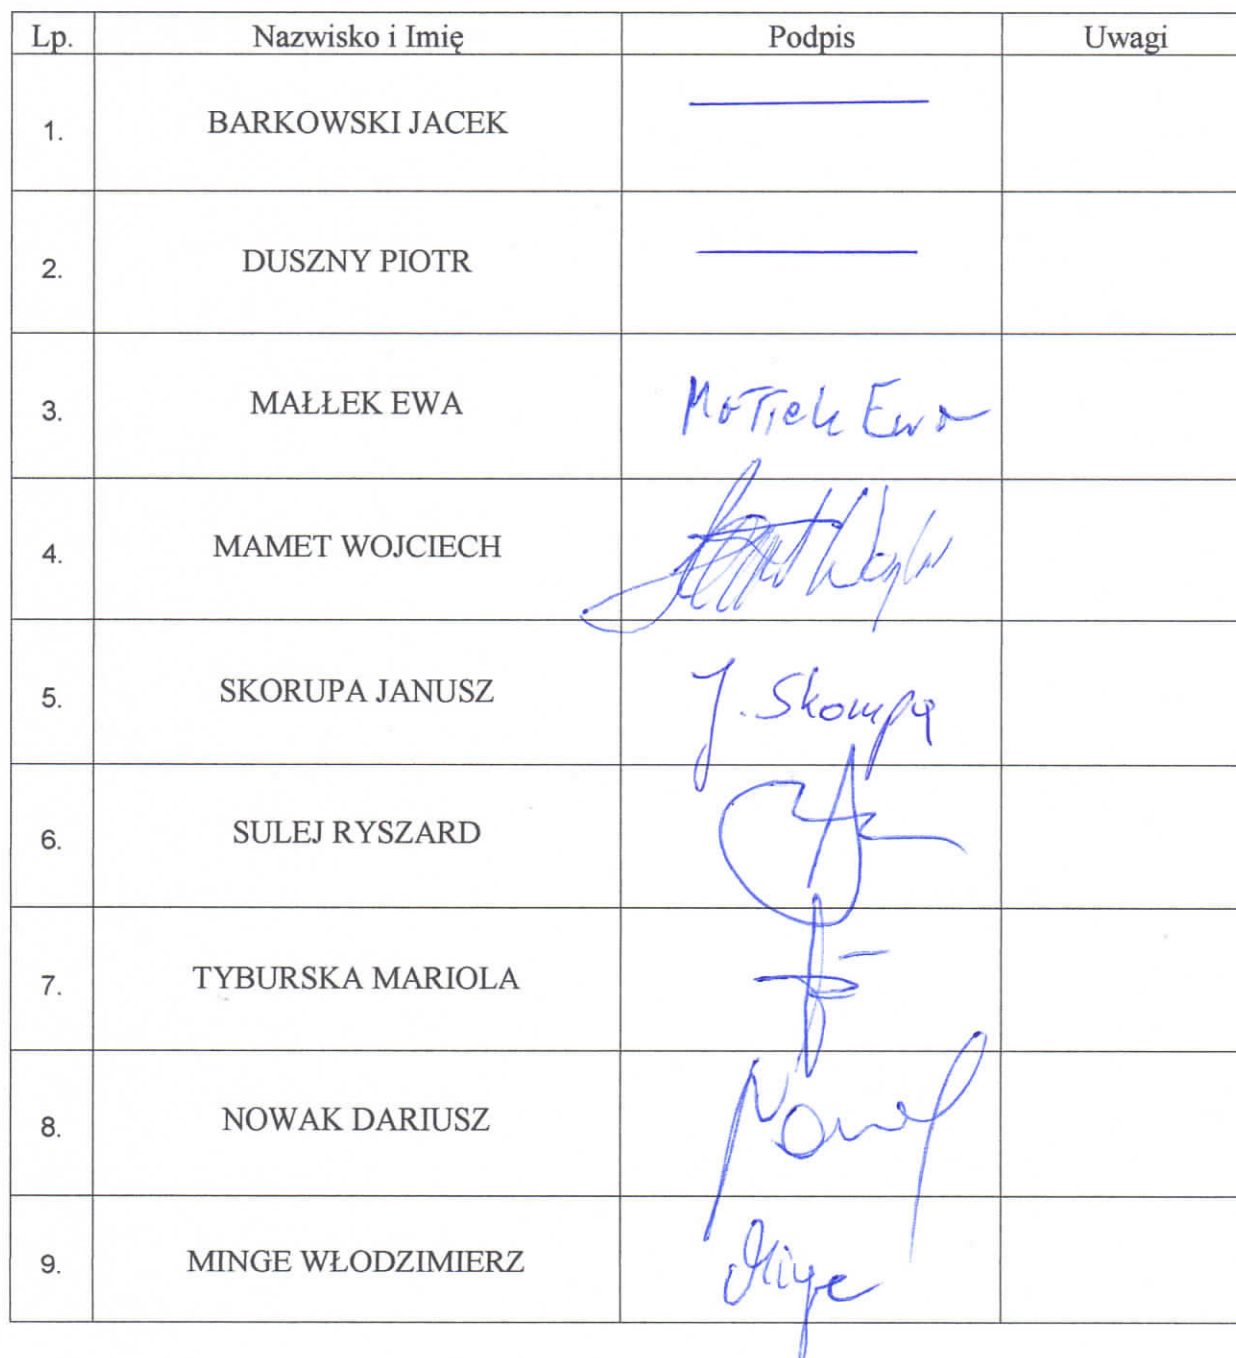 Lp. Nazwisko i Imię Podpis Uwagi
1. BARKOWSKI JACEK
2. DUSZNY PIOTR
3. MAŁŁEK EWA Małłek Ewa
4. MAMET WOJCIECH
5. SKORUPA JANUSZ J. Skorupa
6. SULEJ RYSZARD
7. TYBURSKA MARIOLA
8. NOWAK DARIUSZ Nowak
9. MINGE WŁODZIMIERZ Minge